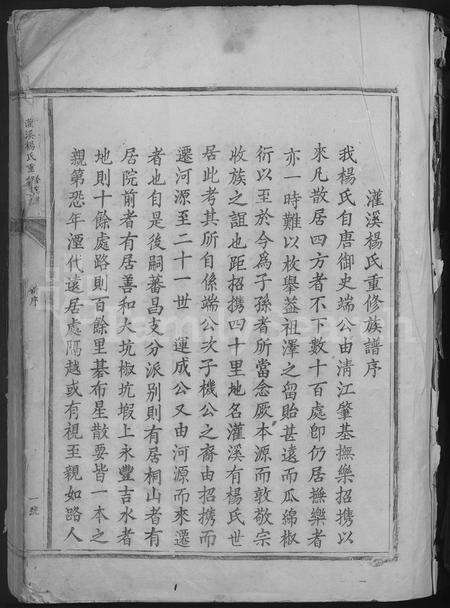 灌溪楊氏重修族譜序
我楊氏自唐御史端公由淸江肇基撫樂招携以
來凡散居四方者不下數十百處卽仍居撫樂者
亦一時難以枚舉葢祖澤之留貽甚遠而瓜綿椒
衍以至於今爲子孫者所當念厥本源而敦敬宗
收族之誼也距招携四十里地名灌溪有楊氏世
居此考其所自係端公次子機公之裔由招携而
遷河源至二十一世 運成公又由河源而來遷
者也自是後嗣蕃昌支分派別則有居桐山者有
居院前者有居善和大坑椒坑塅上永豐吉水者
地則十餘處路則百餘里碁布星散要皆一本之
親第恐年湮代遠居處隔越或有視至親如路人
灌溪楊氏重
序
一號